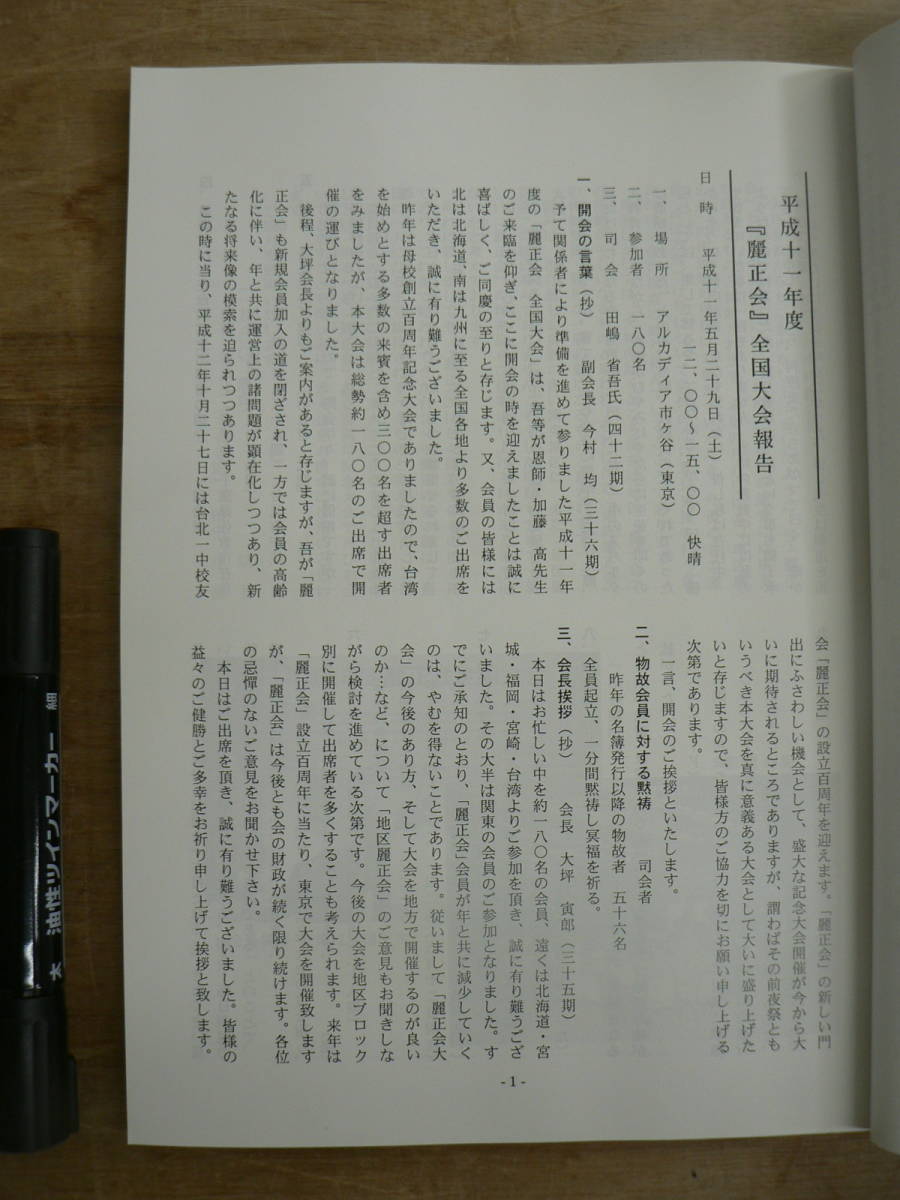 平成十一年度
『麗正会』全国大会報告
日　時　平成十一年五月二十九日（土）
一二、〇〇〜一五、〇〇　快晴
一、場　所　アルカディア市ヶ谷（東京）
二、参加者　一八〇名
三、司　会　田嶋　省吾氏（四十二期）
一、開会の言葉（抄）　副会長　今村　均（三十六期）
予て関係者により準備を進めて参りました平成十一年
度の「麗正会　全国大会」は、吾等が恩師・加藤　高先生
のご来臨を仰ぎ、ここに開会の時を迎えましたことは誠に
喜ばしく、ご同慶の至りと存じます。又、会員の皆様には
北は北海道、南は九州に至る全国各地より多数のご出席を
いただき、誠に有り難うございました。
昨年は母校創立百周年記念大会でありましたので、台湾
を始めとする多数の来賓を含め三〇〇名を超す出席者
をみましたが、本大会は総勢約一八〇名のご出席で開
催の運びとなりました。
後程、大坪会長よりもご案内があると存じますが、吾が「麗
正会」も新規会員加入の道を閉ざされ、一方では会員の高齢
化に伴い、年と共に運営上の諸問題が顕在化しつつあり、新
たなる将来像の模索を迫られつつあります。
この時に当り、平成十二年十月二十七日には台北一中校友
会「麗正会」の設立百周年を迎えます。「麗正会」の新しい門
出にふさわしい機会として、盛大な記念大会開催が今から大
いに期待されるところでありますが、謂わばその前夜祭とも
いうべき本大会を真に意義ある大会として大いに盛り上げた
いと存じますので、皆様方のご協力を切にお願い申し上げる
次第であります。
一言、開会のご挨拶といたします。
二、物故会員に対する黙祷　司会者
昨年の名簿発行以降の物故者　五十六名
全員起立、一分間黙祷し冥福を祈る。
三、会長挨拶（抄）　会長　大坪　寅郎（三十五期）
本日はお忙しい中を約一八〇名の会員、遠くは北海道・宮
城・福岡・宮崎・台湾よりご参加を頂き、誠に有り難うござ
いました。その大半は関東の会員のご参加となりました。す
でにご承知のとおり、「麗正会」会員が年と共に減少していく
のは、やむを得ないことであります。従いまして「麗正会大
会」の今後のあり方、そして大会を地方で開催するのが良い
のか…など、について「地区麗正会」のご意見もお聞きしな
がら検討を進めている次第です。今後の大会を地区ブロック
別に開催して出席者を多くすることも考えられます。来年は
「麗正会」設立百周年に当たり、東京で大会を開催致します
が、「麗正会」は今後とも会の財政が続く限り続けます。各位
の忌憚のないご意見をお聞かせ下さい。
本日はご出席を頂き、誠に有り難うございました。皆様の
益々のご健勝とご多幸をお祈り申し上げて挨拶と致します。
- 1 -
太　油性ツインマーカー　細